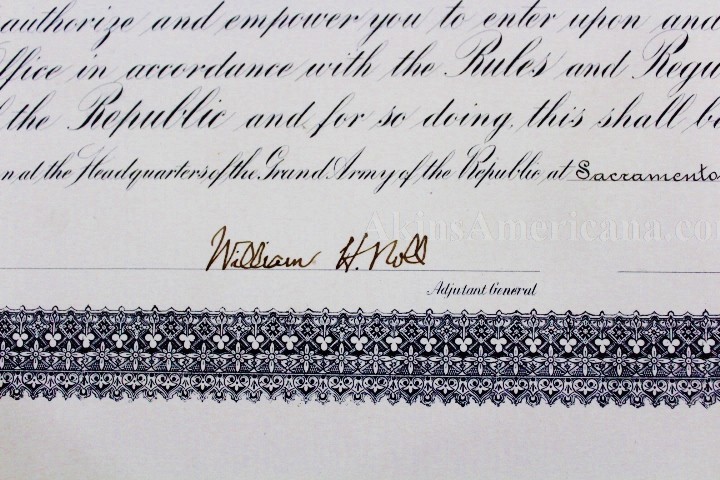 authorize and empower you to enter upon and
Office in accordance with the Rules and Regu
the Republic and for so doing, this shall b
n at the Headquarters of the Grand Army of the Republic at Sacramento
AkinsAmericana.co
William H. Noll
Adjutant General